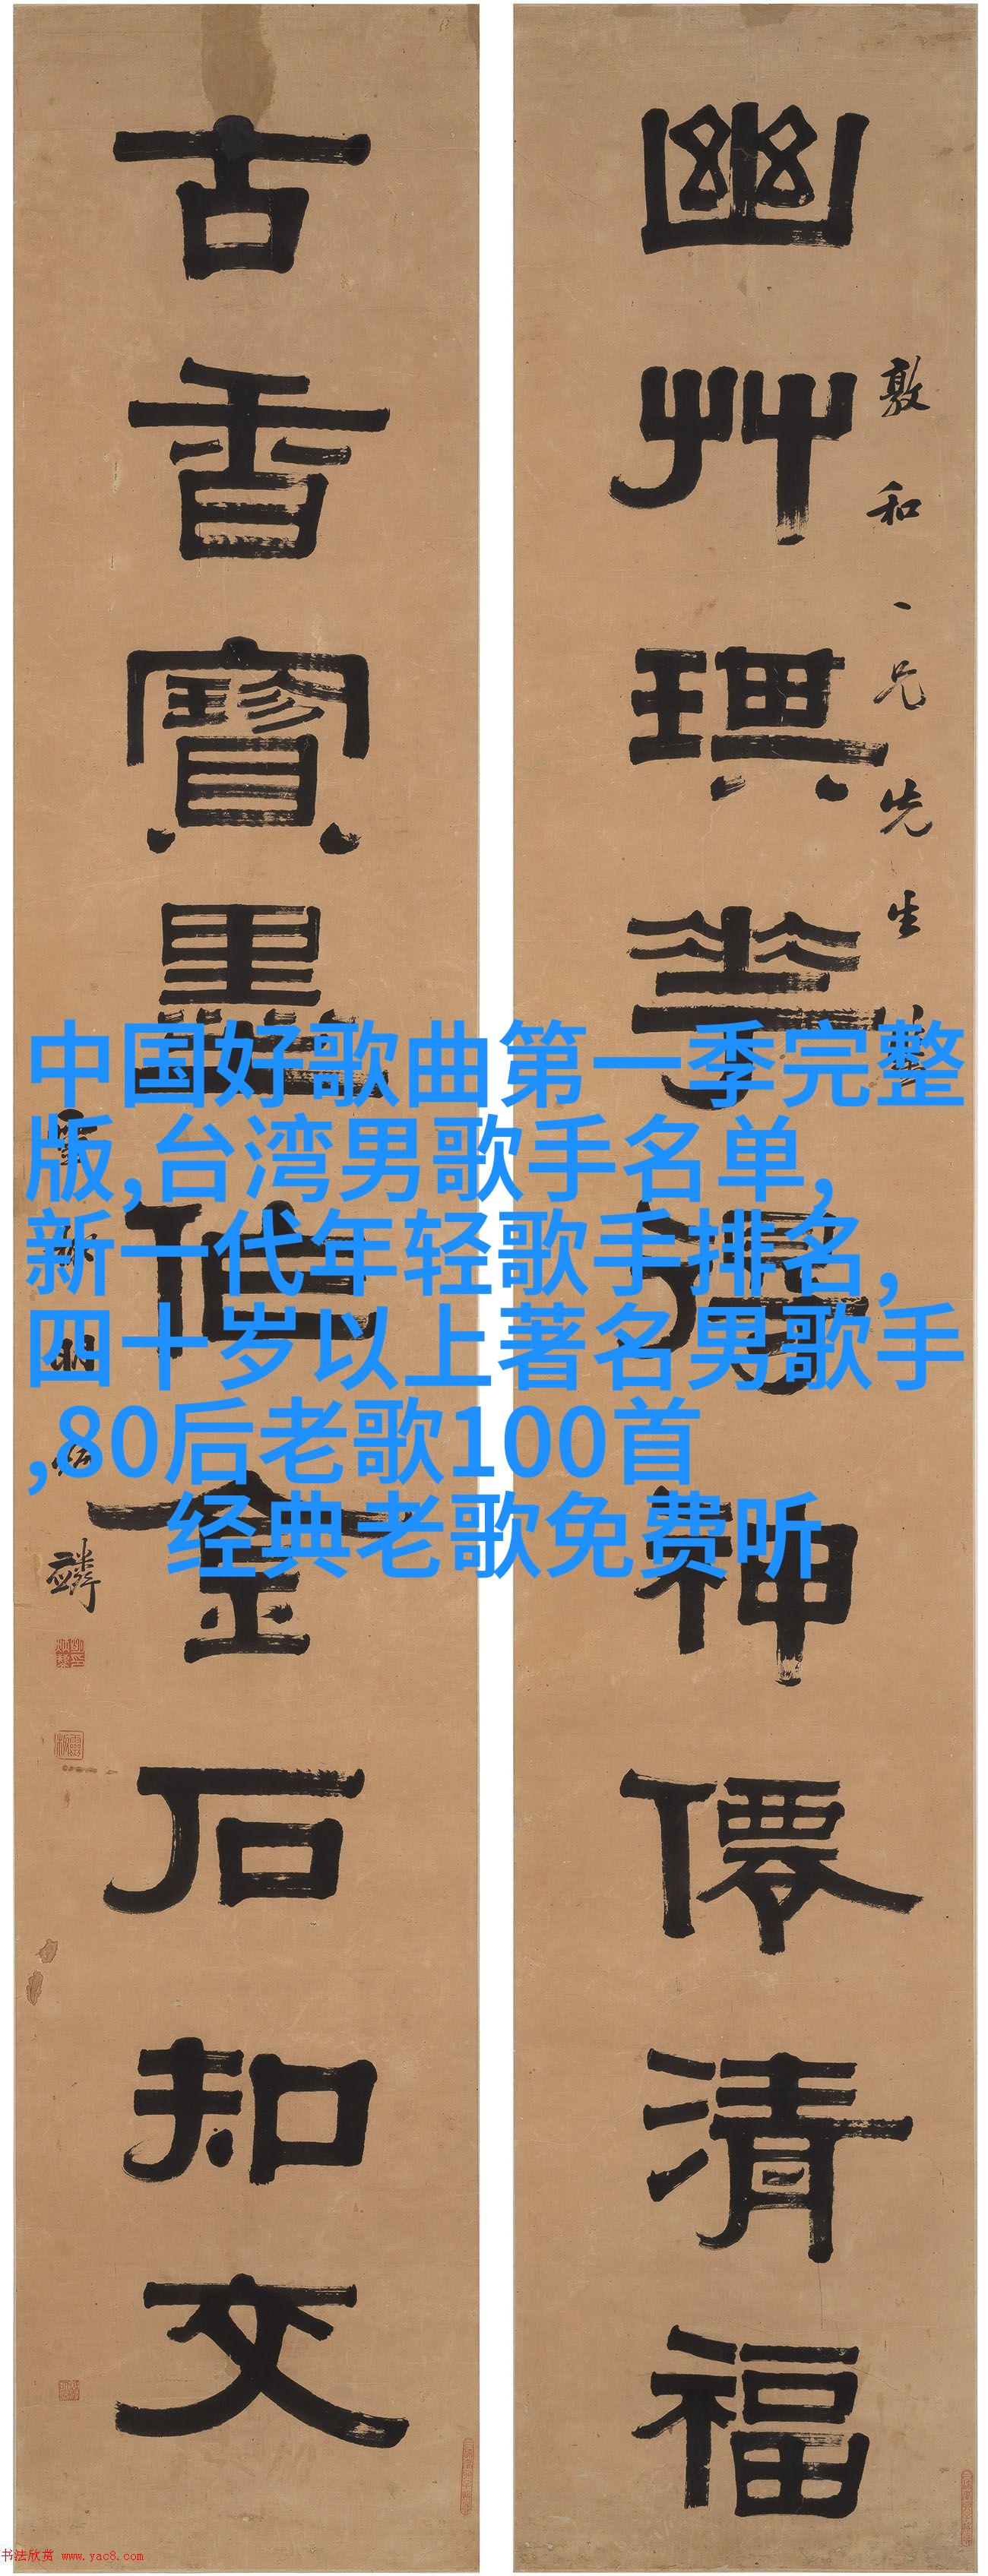 幽艸琪華得神僊清福
敦和一兄先生
古香寶墨作金石知文
中国好歌曲第一季完整
版,台湾男歌手名单,
新一代年轻歌手排名,
四十岁以上著名男歌手
,80后老歌100首
经典老歌免费听
书法欣赏 www.yac8.com